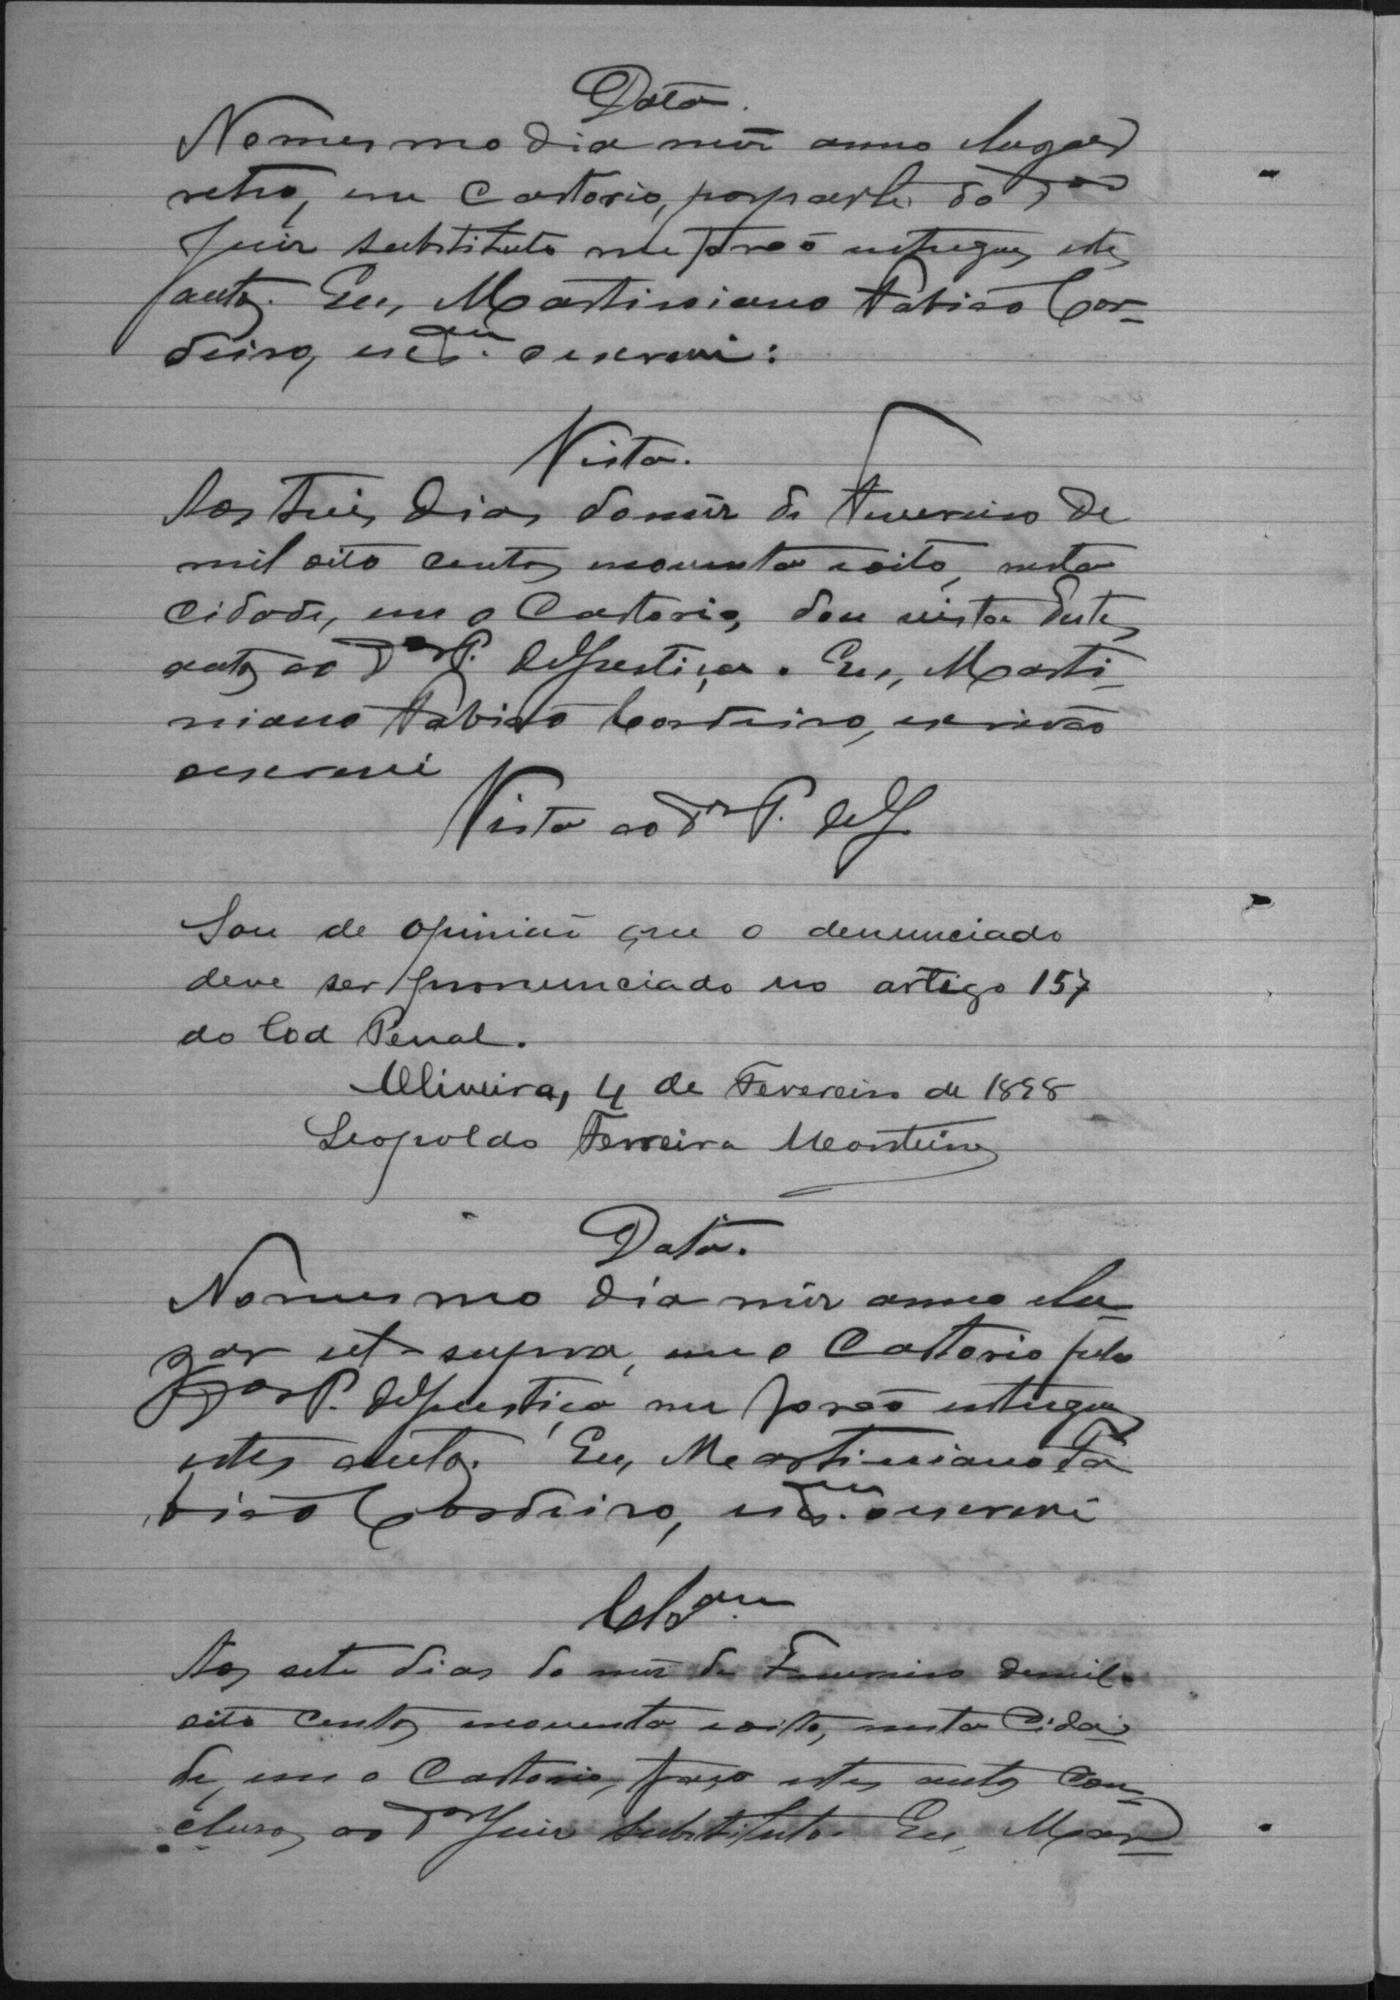 Data.
No mesmo dia mez anno e lugar
retro, em Cartorio, por parte do Dor
Juiz substituto me forão entregues estes
autos. Eu, Martiniano Fabião Cor-
deiro, escram. o escrevi:
Vista.
Aos tres dias do mez de Fevereiro de
mil oito centos noventa e oito, nesta
cidade, em o Cartorio, dou vista destes
autos ao Dor P. de Justiça. Eu, Marti-
niano Fabião Cordeiro, escrivão
o escrevi
Vista ao Dr P. de J.
Sou de opinião que o denunciado
deve ser pronunciado no artigo 157
do Cod Penal.
Oliveira, 4 de Fevereiro de 1898
Leopoldo Ferreira Monteiro
Data.
No mesmo dia mez anno e lu-
gar ut supra, em o Cartorio pelo
Dor P. de Justiça me forão entregues
estes autos. Eu, Martiniano Fa-
bião Cordeiro, escram. o escrevi
Clsam
Aos sete dias do mez de Fevereiro de mil
oito centos noventa e oito, nesta Cida-
de, em o Cartorio, faço estes autos con-
clusos ao Dor Juiz substituto. Eu, Mar-